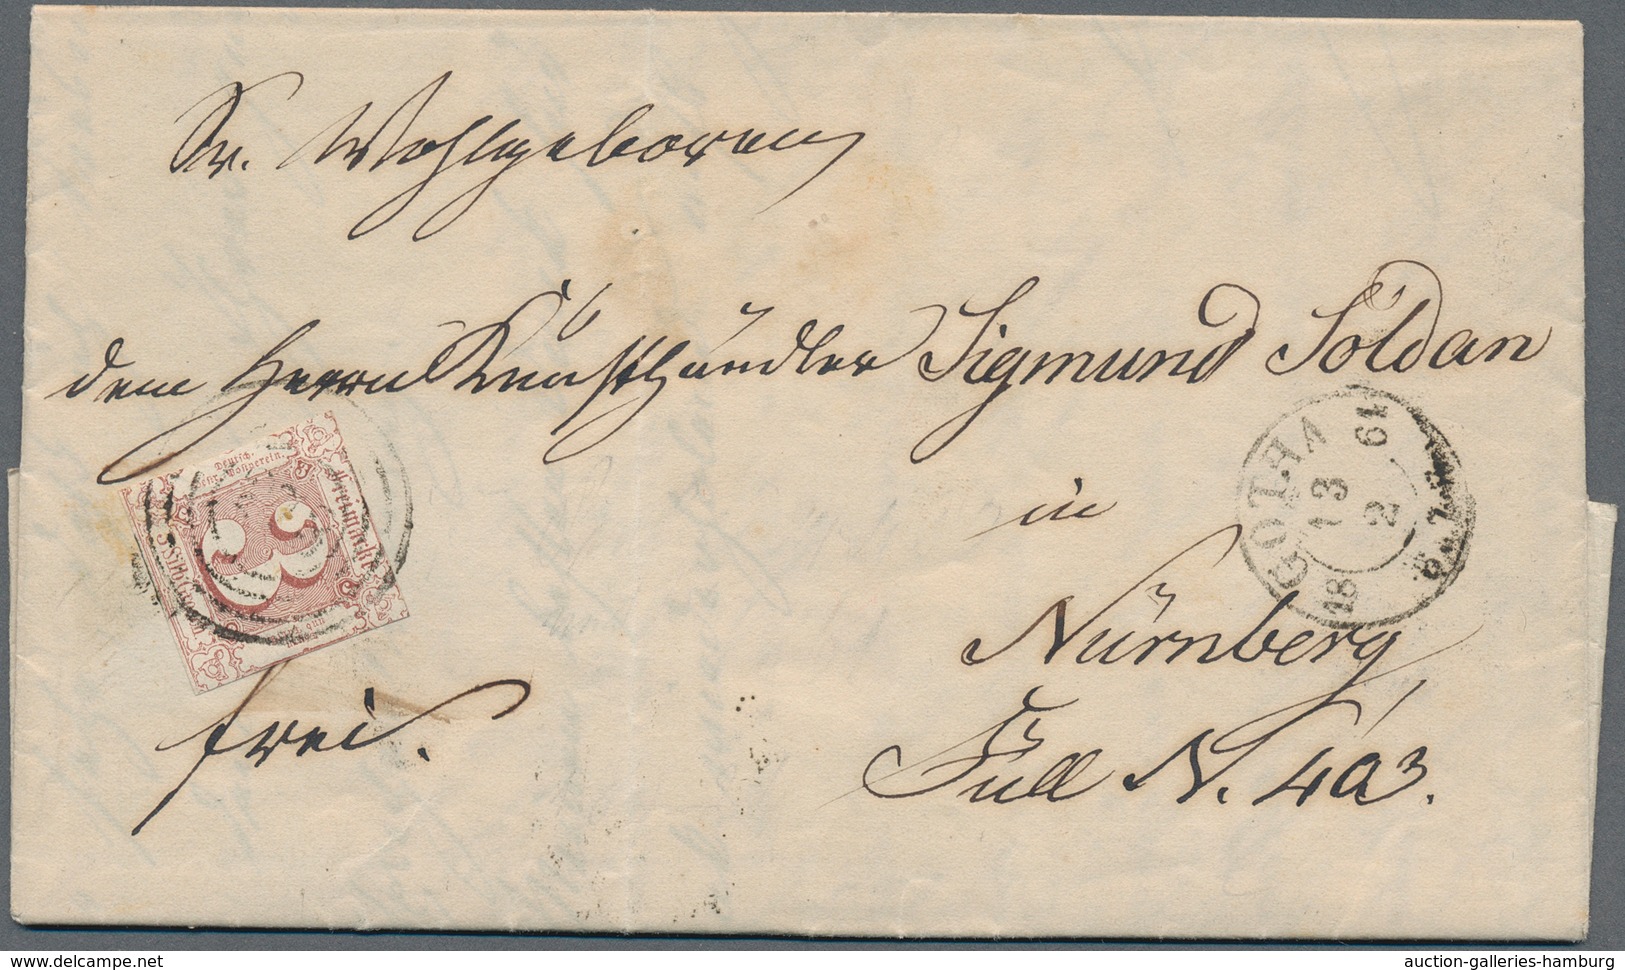 Sr. Wohlgeboren
dem Herrn Kunsthändler Sigmund Söldan
in
Nürnberg
Füll N. 403.
frei.
Deutsch.
Freimarke
3
GOTHA
13
2
18 61
www.delcampe.net
auction-galleries-hamburg